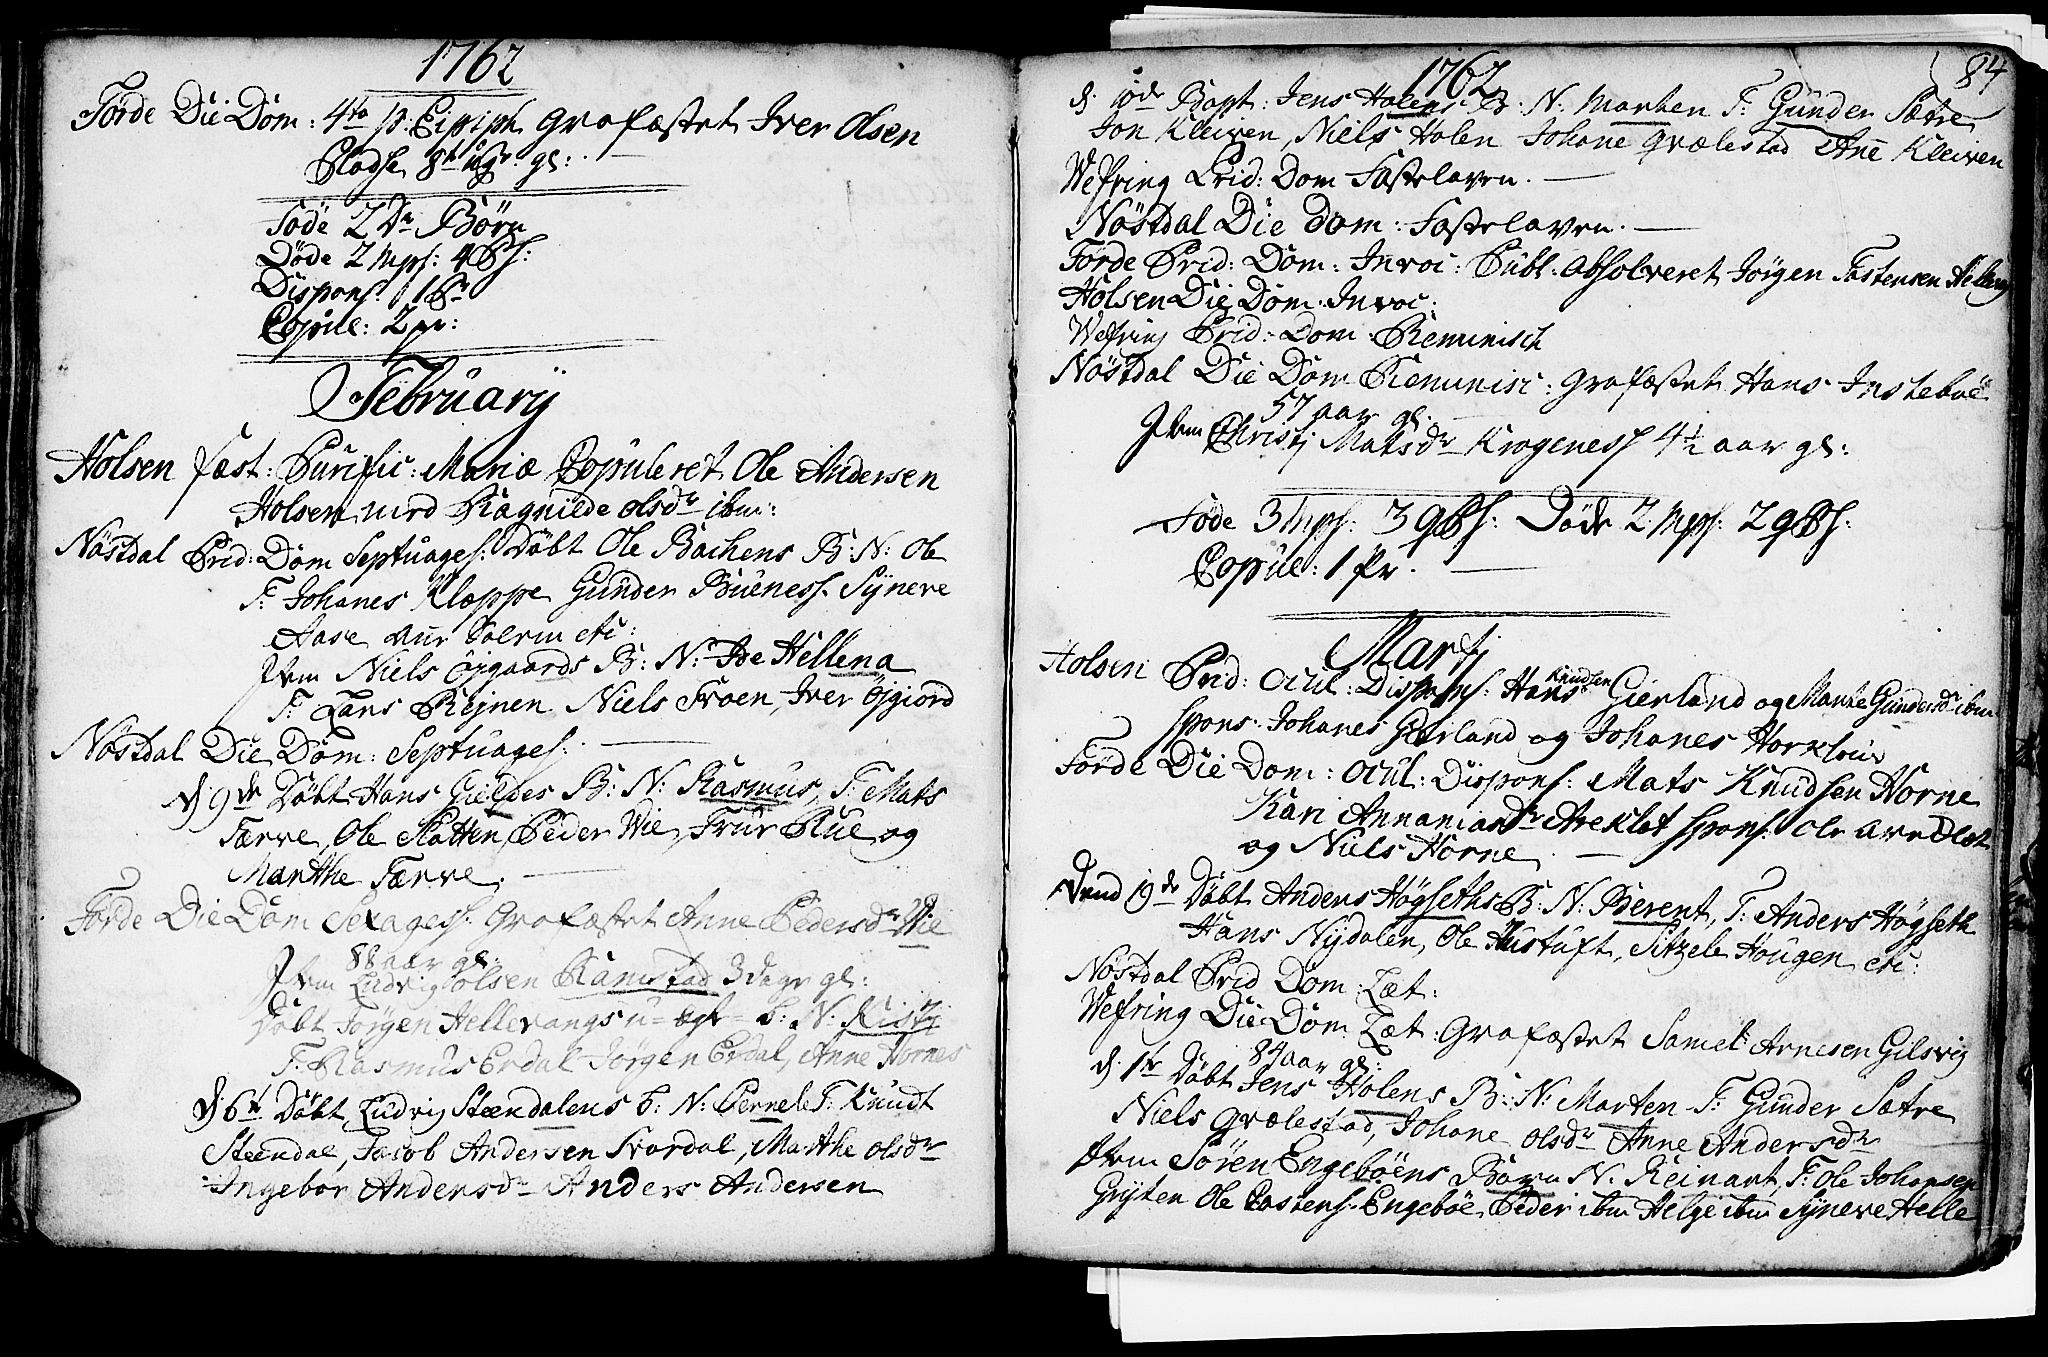 1762
Förde Die Dom: 4ta p: Epiph grafæstet Iver Olsen
8t ugr. gl:
Föde 2 Dr Börn
Döde 2 Mps: 4 Psh:
Dispons: 1 Pr
Copul: 2 pr:
February
Holsen fæst: Purific: Mariæ Copuleret Ole Andersen
Holsen med Ragnilde olsdr ibm:
Nöstdal Prid: Dom Septuages: Döbt Ole Bachens B: N: Ole
F: Johanes Klæppe Gunder Bueness Syneve
Aase etc:
Item Niels öygaards B: N: Hellena
F: Lars Reinen Niels Froen, Iver öygiord
Nöstdal Die Dom: Septuages:
d: 9de Döbt Hans Gieldes B: N: Rasmus, F: Mats
Færve, Ole Slatten Peder Wie, Rue og
Marthe Færve.
Förde Die Dom Sexages: Grafæstet Anne Pedersdr Wie
88 aar gl:
Item Ludvig olsen Ramstad 3 dage gl:
Döbt Jörgen Hellevangs u= egte= b: N: Kisti
F: Rasmus Erdal Jörgen Erdal, Anne Hornes
d: 6t Döbt Ludvig Steendalens b: N: Pernele F: Knudt
Steendal, Jacob Andersen Svardal, Marthe olsdr
Ingebor Andersdr Anders Andersen
1762
84
d. 10de Bapt: Jens Holens B: N: Marten F: Gunder Sætre
Jon Kleiven, Niels Holen Johane Grælestad Ane Kleiven
Wefring Prid: Dom Fastelaven.
Nöstdal Die Dom: Fastelaven.
Förde Prid: Dom: Invoc: Publ: absolveret Jörgen Fastensen
Holsen Die Dom: Invoc:
Wefring Prid: Dom Reminisch
Nöstdal Die Dom Reminisc: grafæstet Hans Instebøe
57 aar gl.
Item Christj Matsdr Krogeness 4½ aar gl:
Föde 3 Mps: 3 qPsh: Döde 2 Mps: 2 qPsh:
Copul: 1 Pr.
Martj
Holsen Prid: Ocul: Dispons: Hans Knudsen Gierland og Marthe Gundersdr ibm
spons: Johanes Gierland og Johanes Horkleiv
Förde Die Dom: Ocul: Dispons: Mats Knudsen Horne
Kari Annaniasdr Areklet spons: Ole Areklet
og Niels Horne
Dend 19de Döbt Anders Högseths B: N: Berent, F: Anders Högseth
Hans Nydalen, Ole Hustuft, Sitzele Hougen etc:
Nöstdal Prid Dom: Læt:
Wefring Die Dom Læt: Grafæstet Samel Arnesen Gilsvig
84 aar gl:
d. 1te Döbt Jens Holens B: N: Marten F: Gunder Sætre
Niels Grælestad, Johane olsdr Anne Andersdr
Item Sören Engebøens Barn N: Reinart, F: Ole Johansen
Gryten Ole Engebøe Peder ibm Helge ibm Syneve Helle